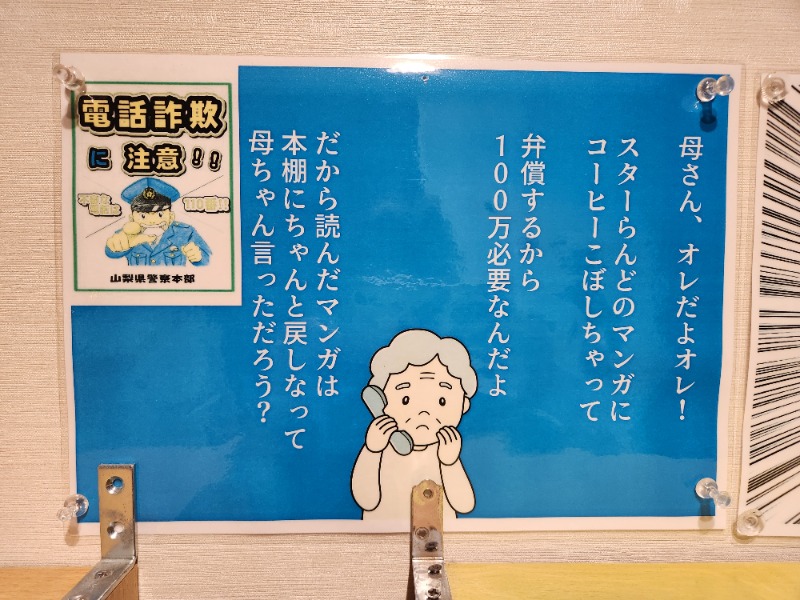 母さん、オレだよオレ!
スターらんどのマンガに
コーヒーこぼしちゃって
弁償するから
100万必要なんだよ
だから読んだマンガは
本棚にちゃんと戻しなって
母ちゃん言っただろう?
電話詐欺
に注意!!
110番!!
山梨県警察本部